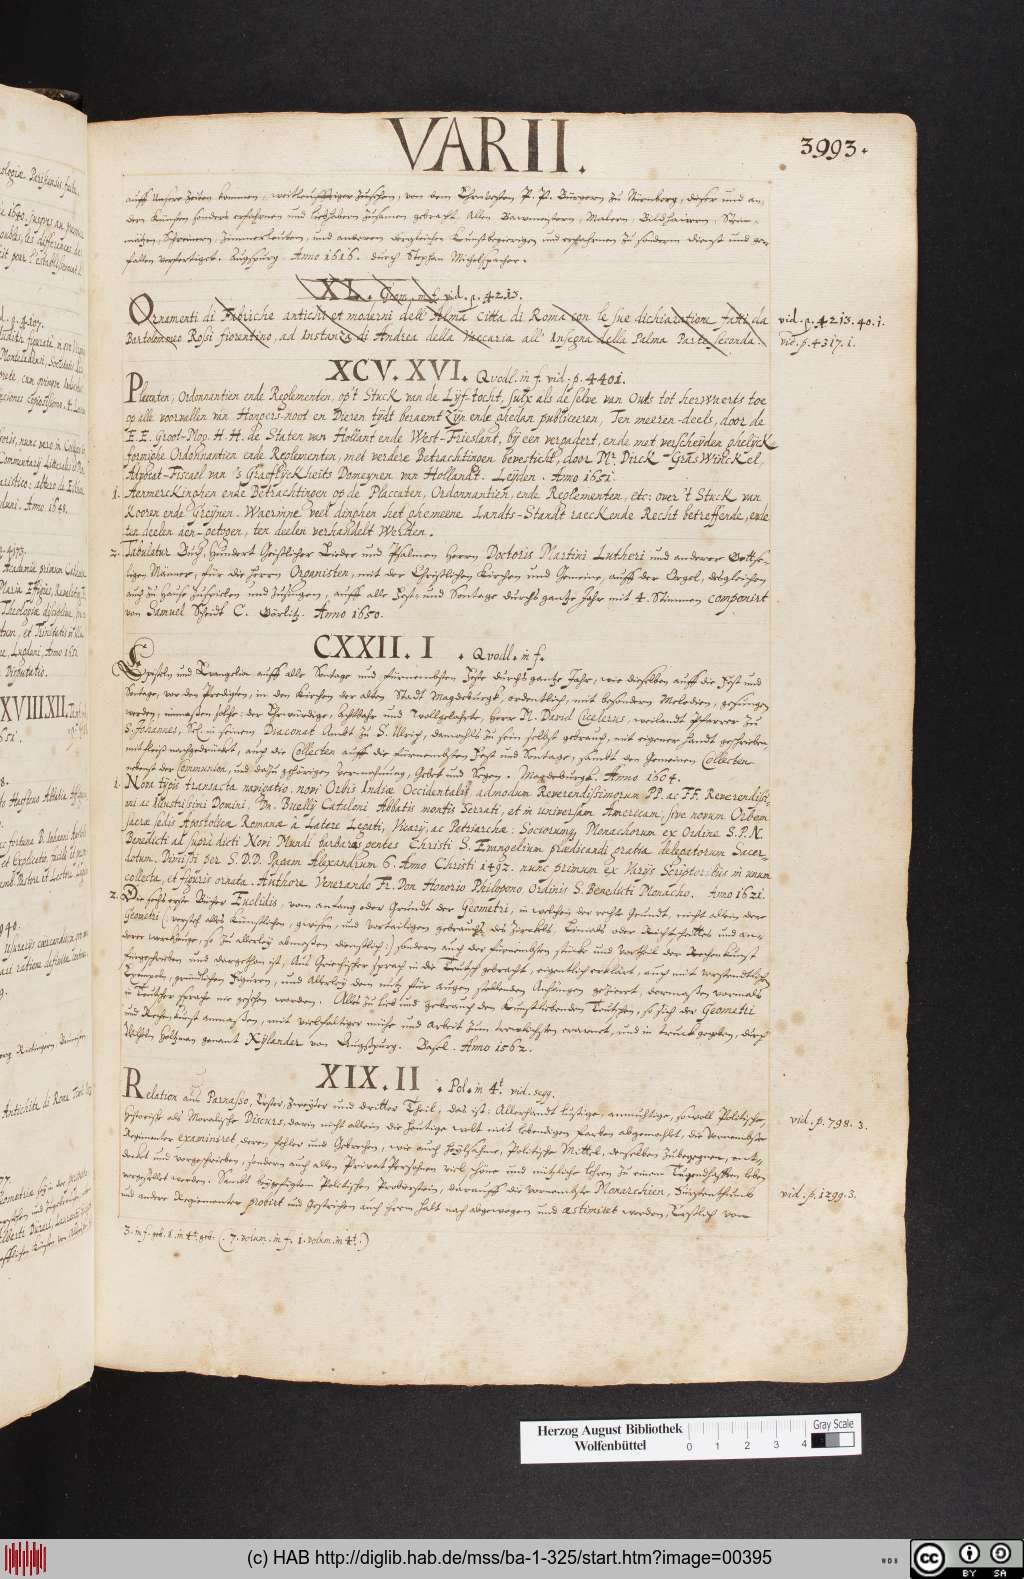 VARII.
3993.
auff unsere Zeiten kommen, weitleufftiger Zusehen, von dem Ehrvesten P. P. Bürgern zu Nürmberg, dieser und an,
dern Künsten sonders erfahrnen und liebhabern zusamen gebracht. Allen Bawmeistern, Malern, Bildhawern, Stein-
metzen, Schreinern, Zimmerleuten, und anderen dergleichen Kunstbegierigen und erfahrnen zu sonderm dienst und ge-
fallen verfertiget. Augspurg Anno 1616. durch Stephan Michelspacher.
XL. Geom. in f. vid. p. 4213.
Ornamenti di Fabriche antichi et moderni dell' Alma Citta di Roma con le sue dichiaratione fatti da
Bartolomeo Rossi fiorentino, ad Instanza di Andrea della Vaccaria all' Insegna della Palma Parte seconda.
vid. p. 4213. 40. 1.
vid. p. 4317. 1.
XCV. XVI. Quodl. in f. vid. p. 4401.
Placcaten, Ordonnantien ende Reglementen, op't Stuck van de Lijf-tocht, sulx als de selve van Outs tot herswaerts toe
op alle voorvallen van Hongers-noot en Dieren tydt beraemt zijn ende ghedan publiceren, Ten meeren-deels, door de
E. E. Groot-Mog. H. H. de Staten van Hollant ende West-Frieslant, by een vergadert, ende met verscheyden ghelyck-
formighe Ordonnantien ende Reglementen, met verdere Betrachtingen bevesticht, door Mr. Dirck Graswinckel,
Advocat-Fiscael van 's Graeflyckheits Domeynen van Hollandt. Leyden. Anno 1651.
1. Aenmerckinghen ende Betrachtingen op de Placcaten, Ordonnantien, ende Reglementen, etc: over 't Stuck van
Kooren ende Greynen. Waerinne veel dinghen het ghemeene Landts-Standt raeckende Recht betreffende, ende
ten deelen aen-getogen, ten deelen verhandelt Werden.
2. Tabulatur Buch, Hundert Geistlicher Lieder und Psalmen Herrn Doctoris Martini Lutheri und anderer Gottse-
ligen Männer, für die Herrn Organisten, mit der Christlichen Kirchen und Gemeine, auff der Orgel, desgleichen
auch zu Hause zuspielen und zusingen, auff alle Fest- und Sontage durchs gantze Jahr mit 4. Stimmen componirt
von Samuel Scheidt C. Görlitz. Anno 1650.
CXXII. I. Quodl. in f.
Episteln und Evangelia auff alle Sontage und fürnembsten Feste durchs gantze Jahr, wie dieselben auff die Fest und
Sontage, vor den Predigten, in den Kirchen der alten Stadt Magdeburgk, ordentlich, mit besondern Melodien, gesungen
werden, inmassen solche: der Ehrwürdige, Achtbahr und Wollgelahrte, Herr M. David Cicelerus, weilandt Pfarrer zu
S. Johannes, Sel. in seinem Diaconat Ambt zu S. Ulrich, damahls zu sein selbst gebrauch, mit eigener Handt geschrieben
mit fleiß nachgedruckt, auch die Collecten auff die fürnembsten Fest und Sontage, sambt den Gemeinen Collecten
nebenst der Communion, und dazu gehörigen Vermahnung, Gebet und Segen. Magdeburgk. Anno 1604.
1. Nova typis transacta navigatio. novi Orbis Indiæ Occidentalis, admodum Reverendissimorum PP. ac FF. Reverendissi-
mi ac Illustrissimi Domini, Dn. Buellij Cataloni Abbatis montis Serrati, et in universam Americam, sive novum Orbem
sacræ sedis Apostolicæ Romanæ à Latere Legati, Vicarij, ac Patriarchæ: Sociorumq, Monachorum ex Ordine S. P. N.
Benedicti ad supra dicti Novi Mundi barbaras gentes Christi S. Evangelium prædicandi gratia delegatorum Sacer-
dotum. Dimissi per S. D. D. Papam Alexandrum 6. Anno Christi 1492. nunc primum ex Varijs Scriptoribus in unum
collecta, et figuris ornata. Authore Venerando Fr. Don Honorio Philopono Ordinis S. Benedicti Monacho. Anno 1621.
2. Die sechs erste Bücher Euclidis, vom anfang oder Grundt der Geometri, in welchen der rechte Grundt, nicht allein der
Geometri (versteh alles künstlichen, gewissen, und vortailigen gebrauchs des Zirckels, Linials oder Richtscheittes und an-
derer werckzeüge, so zu allerley abmessen dienstlich:) sondern auch der fürnembsten stuck und Vortheil der Rechenkunst
fürgeschrieben und dargethon ist, Aus Griechischer sprach in die Teütsch gebracht, eigentlich erklärt, auch mit verstendtlichen
Exempeln, gründlichen Figuren, und allerley den nutz für augen stellenden Anhängen geziert, dermassen vormals
in Teütscher sprach nie gesehen worden. Alles zu lieb und gebrauch den Kunstliebenden Teütschen, so sich der Geometri
und Rechenkunst anmassen, mit vielfältiger mühe und arbeit zum trewlichsten erarnet, und in truck gegeben, durch
Wilhelm Holtzman genant Xylander von Augspurg. Basel. Anno 1562.
XIX. II. Pol. in 4t. vid. seqq.
Relation aus Parnasso, Erster, Zweyter und dritter Theil, das ist: Allerhandt lustige, anmuhtige, sowoll Politische,
Historische als Moralische Discurs, darin nicht allein die heutige welt mit lebendigen farben abgemahlt, die Vornembste
Regimenter examiniret, deren fehler und Gebrechen, wie auch heylsahme, Politische Mittel, denselben zubegegnen, ent-
deckt und vorgeschrieben, sondern auch allen Privat Persohnen viel schöne und nützliche lehren zu einem Tugendhafften leben
vorgestellet werden. Sambt beygefügtem Politischen Probierstein, darauff die vornembste Monarchien, Fürstenthumb
und andere Regimenter probirt und Gestrichen auch ihrem halt nach abgewogen und æstimiret werden, Erstlich von
vid. p. 798. 3.
vid. p. 1299. 3.
3. in f. geb. 1. in 4t. geb. (7. volum. in f. 1. volum. in 4t.)
Herzog August Bibliothek
Wolfenbüttel
0 1 2 3 4
Gray Scale
(c) HAB http://diglib.hab.de/mss/ba-1-325/start.htm?image=00395
WDB
CC BY SA